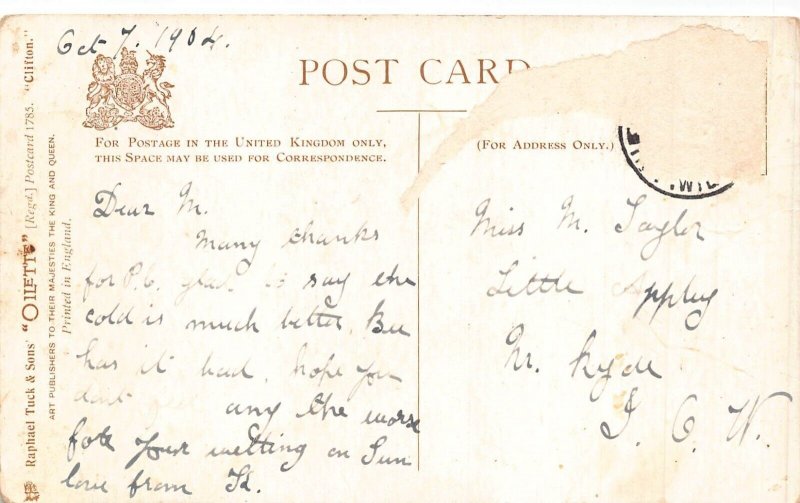 Oct 7. 1904.
POST CARD
FOR POSTAGE IN THE UNITED KINGDOM ONLY,
THIS SPACE MAY BE USED FOR CORRESPONDENCE.
(FOR ADDRESS ONLY.)
Dear M.
Many thanks
for P.C. glad to say the
cold is much better. Bee
has it bad. hope you
dont any the worse
for your wetting on Sun
love from
Miss M. Taylor
Little Appley
Nr. Ryde
I. O. W.
Raphael Tuck & Sons' "OILETTE" [Regd.] Postcard 1785. "Clifton."
ART PUBLISHERS TO THEIR MAJESTIES THE KING AND QUEEN.
Printed in England.